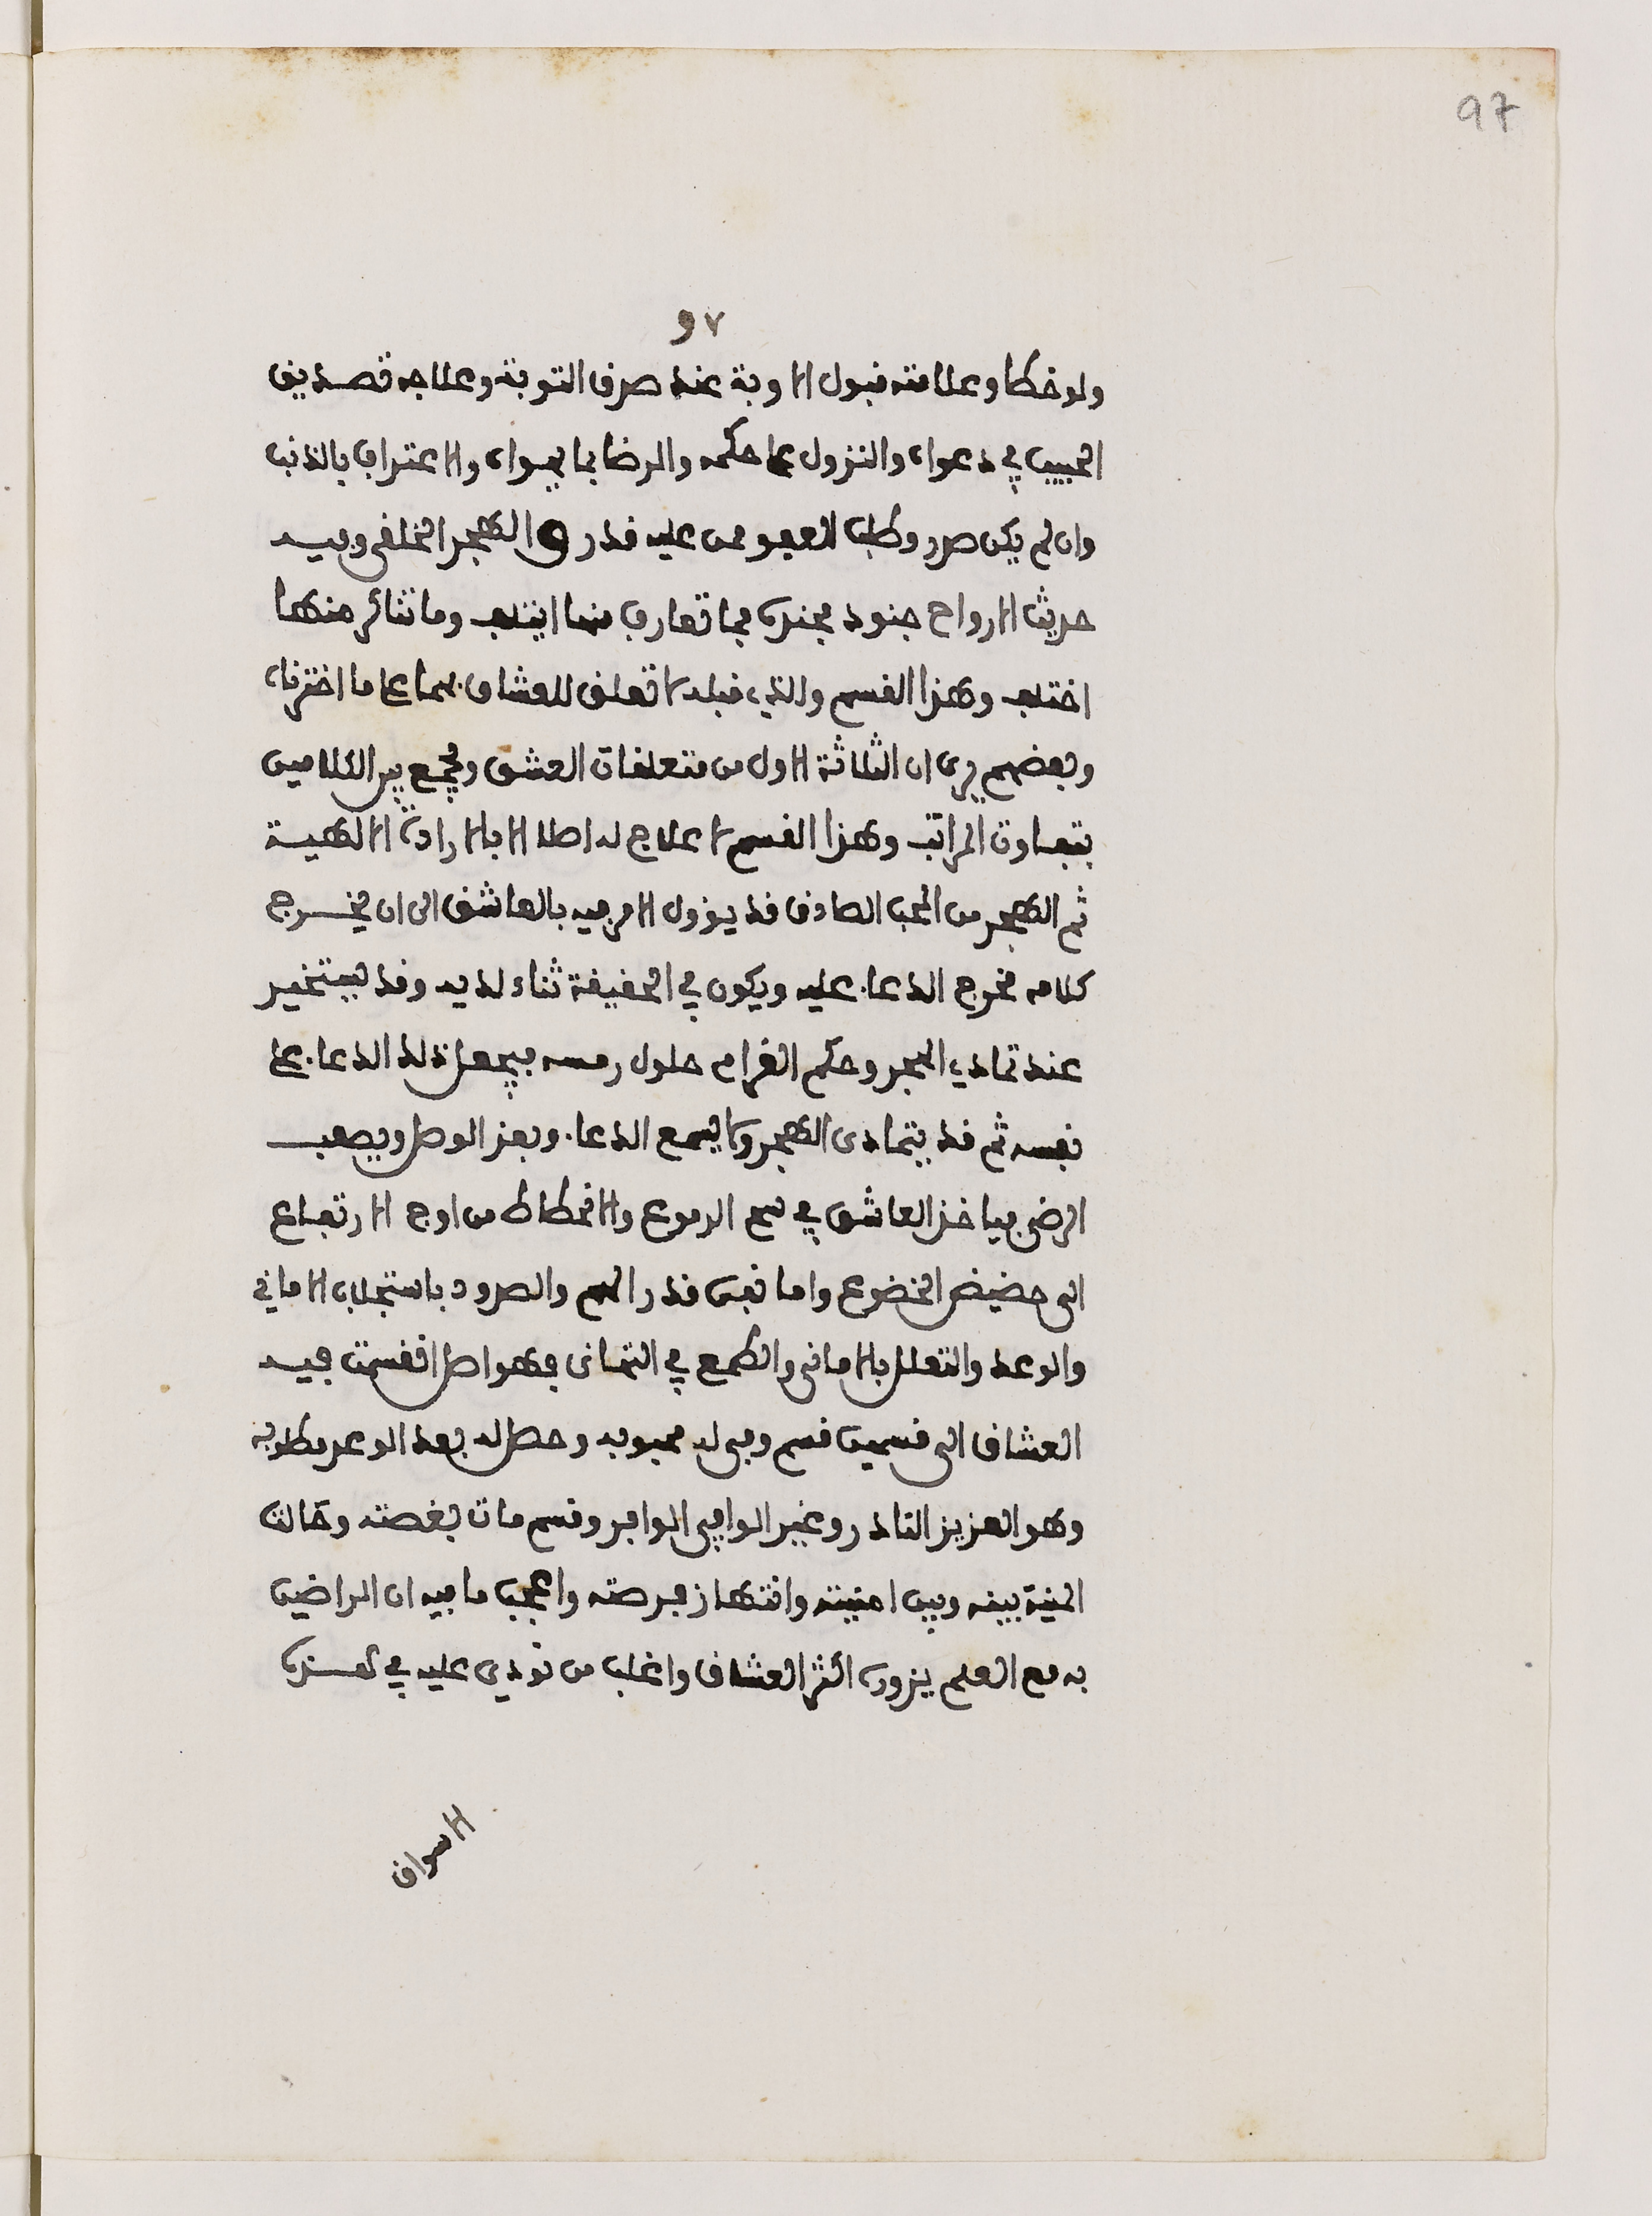 97
٩٧
ولو خطا وعلامته قبول الاوبة عند صرف التوبة وعلاجه تصديق
الحبيب في دعواه والنزول على حكمه والرضا بما يهواه والاعتراف بالذنب
وان لم يكن صدر وطلب العفو ممن عليه قدر و الهجر الخلقي وفيه
حديث الارواح جنود مجندة فما تعارف منها ائتلف وما تناكر منها
اختلف وهذا القسم والذي قبله لا تعلق للعشاق بهما على ما اخترناه
وبعضهم يرى ان الثلاثة الاول من متعلقات العشق ويجمع بين الكلامين
بتفاوت المراتب وهذا القسم لا علاج له اصلا الا بالارادة الالهية
ثم الهجر من المحب الصادق قد يؤول الامر فيه بالعاشق الى ان يخرج
كلامه مخرج الدعاء عليه ويكون في الحقيقة ثناء لديه وقد يستخير
عند تمادي الهجر وحكم الغرام حلول رمسه فيجعل ذلك الدعاء على
نفسه ثم قد يتمادى الهجر ولا يسمع الدعاء ويعز الوصل ويصعب
الرضى فياخذ العاشق في سح الدموع والانحطاط من اوج الارتفاع
الى حضيض الخضوع واما نفس قدر الهم والصدود باستجلاب الاماني
والوعد والتعلل بالاماني والطمع في التهاني فهو اصل انقسمت فيه
العشاق الى قسمين قسم وفى له محبوبه وحصل له بعد الوعد مطلوبه
وهو العزيز النادر وغير الوافي الوافر وقسم مات بغصته وحالت
المنية بينه وبين امنيته وانتهاز فرصته واعجب ما فيه ان الراضين
به مع العلم بزوره اكثر العشاق واغلب من نودي عليه في هذه
الاسواق